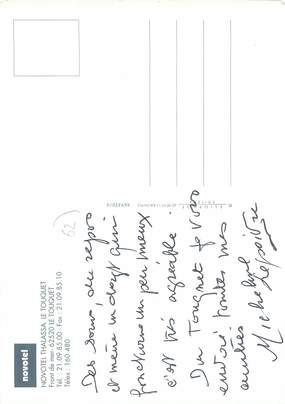 Des soins, du repos
et même un doigt qui
fonctionne un peu mieux
c'est très agréable.
Du Touquet je vous
envoie toutes mes
amitiés
Micheline
62
novotel
NOVOTEL THALASSA LE TOUQUET
Front de mer 62520 LE TOUQUET
Tél. : 21.09.85.00 - Fax : 21.09.85.10
Télex : 160 480